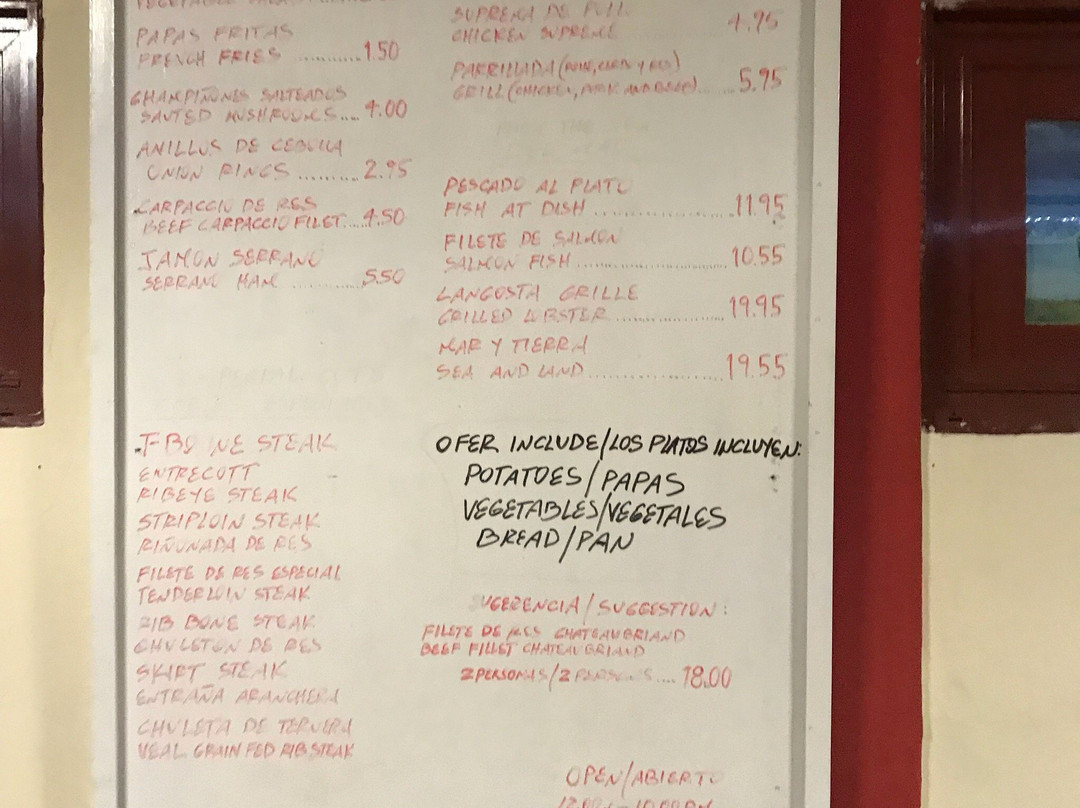 PAPAS FRITAS
FRENCH FRIES ............1.50
CHAMPIÑONES SALTEADOS
SAUTED MUSHROOMS.... 4.00
ANILLOS DE CEBOLLA
ONION RINGS ..........2.95
CARPACCIO DE RES
BEEF CARPACCIO FILET....4.50
JAMON SERRANO
SERRANO HAM ............5.50
T-BONE STEAK
ENTRECOTT
RIBEYE STEAK
STRIPLOIN STEAK
RIÑONADA DE RES
FILETE DE RES ESPECIAL
TENDERLOIN STEAK
RIB BONE STEAK
CHULETON DE RES
SKIRT STEAK
ENTRAÑA ARANCHERA
CHULETA DE TERNERA
VEAL GRAIN FED RIB STEAK
SUPREMA DE POLL
CHICKEN SUPREME 4.95
PARRILLADA (POLLO, CERDO Y RES)
GRILL (CHICKEN, PORK AND BEEF)......5.95
PESCADO AL PLATO
FISH AT DISH .................11.95
FILETE DE SALMON
SALMON FISH .................... 10.55
LANGOSTA GRILLE
GRILLED LOBSTER ................ 19.95
MAR Y TIERRA
SEA AND LAND ................... 19.55
OFER INCLUDE/LOS PLATOS INCLUYEN:
POTATOES/PAPAS
VEGETABLES/VEGETALES
BREAD/PAN
SUGERENCIA/SUGGESTION:
FILETE DE RES CHATEAUBRIAND
BEEF FILLET CHATEAUBRIAND
2 PERSONAS/2 PERSONS.... 18.00
OPEN/ABIERTO